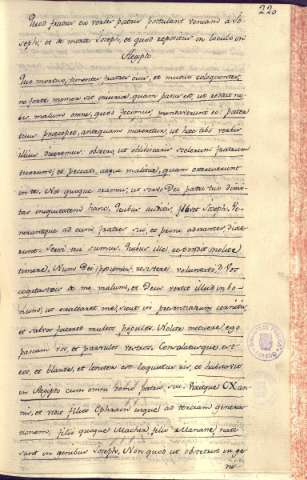 220
Quod fratres ex verbis patris postulant veniam a Jo-
seph; et de morte Joseph, et quod repositus in loculo in
Aegypto
Quo mortuo, timentes fratres eius, et mutuo colloquentes,
ne forte memor sit injuriae, quam passus est, et reddat no-
bis malum omne, quod fecimus, mandaverunt ei: pater
tuus praecepit, antequam moreretur, ut haec tibi verbis
illius diceremus: obsecro, ut obliviscaris sceleris fratrum
tuorum, et peccati, atque malitiae, quam exercuerunt
in te. Nos quoque oramus, ut servis Dei patris tui dimit-
tas iniquitatem hanc. Quibus auditis, flevit Joseph. Ve-
neruntque ad eum fratres sui, et proni adorantes, dixe-
runt: Servi tui sumus. Quibus ille,
timere: Num Dei possumus resistere voluntati? Vos
cogitastis de me malum, et Deus vertit illud in bo-
num, ut exaltaret me, sicut in praesentiarum cernitis,
et salvos faceret multos populos. Nolite metuere: ego
pascam vos, et parvulos vestros. Consolatusque est
eos, et blande, et leniter est loquutus eis; et habitavit
in Aegypto cum omni domo patris sui. Vixitque CX an-
nis, et vidit filios Ephraim usque ad tertiam genera-
tionem, filii quoque Machir, filii Manasse, nati
sunt in genibus Joseph. Non quod